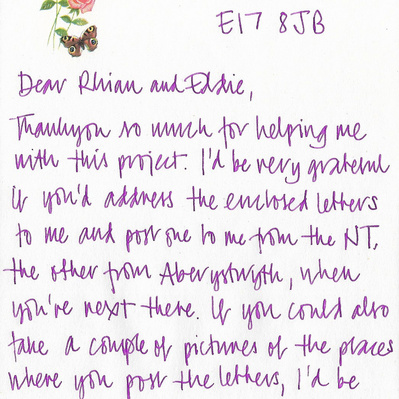 E17 8JB
Dear Rhian and Eddie,
Thankyou so much for helping me
with this project. I'd be very grateful
if you'd address the enclosed letters
to me and post one to me from the NT,
the other from Aberystwyth, when
you're next there. If you could also
take a couple of pictures of the places
where you post the letters, I'd be